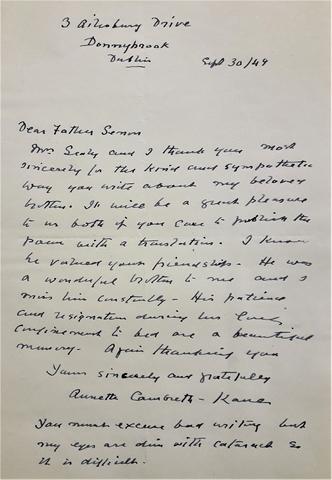 3 Ailesbury Drive
Donnybrook
Dublin
Sept 30/49
Dear Father Senan
Mrs. Sealy and I thank you most
sincerely for the kind and sympathetic
way you write about my beloved
brother. It will be a great pleasure
to us both if you care to publish the
poem with a translation. I know
he valued your friendship - He was
a wonderful brother to me and I
miss him constantly - His patience
and resignation during his long
confinement to bed are a beautiful
memory - Again thanking you
Yours sincerely and gratefully
Annette Cambreth - Kane
You must excuse bad writing but
my eyes are dim with cataract so
it is difficult.